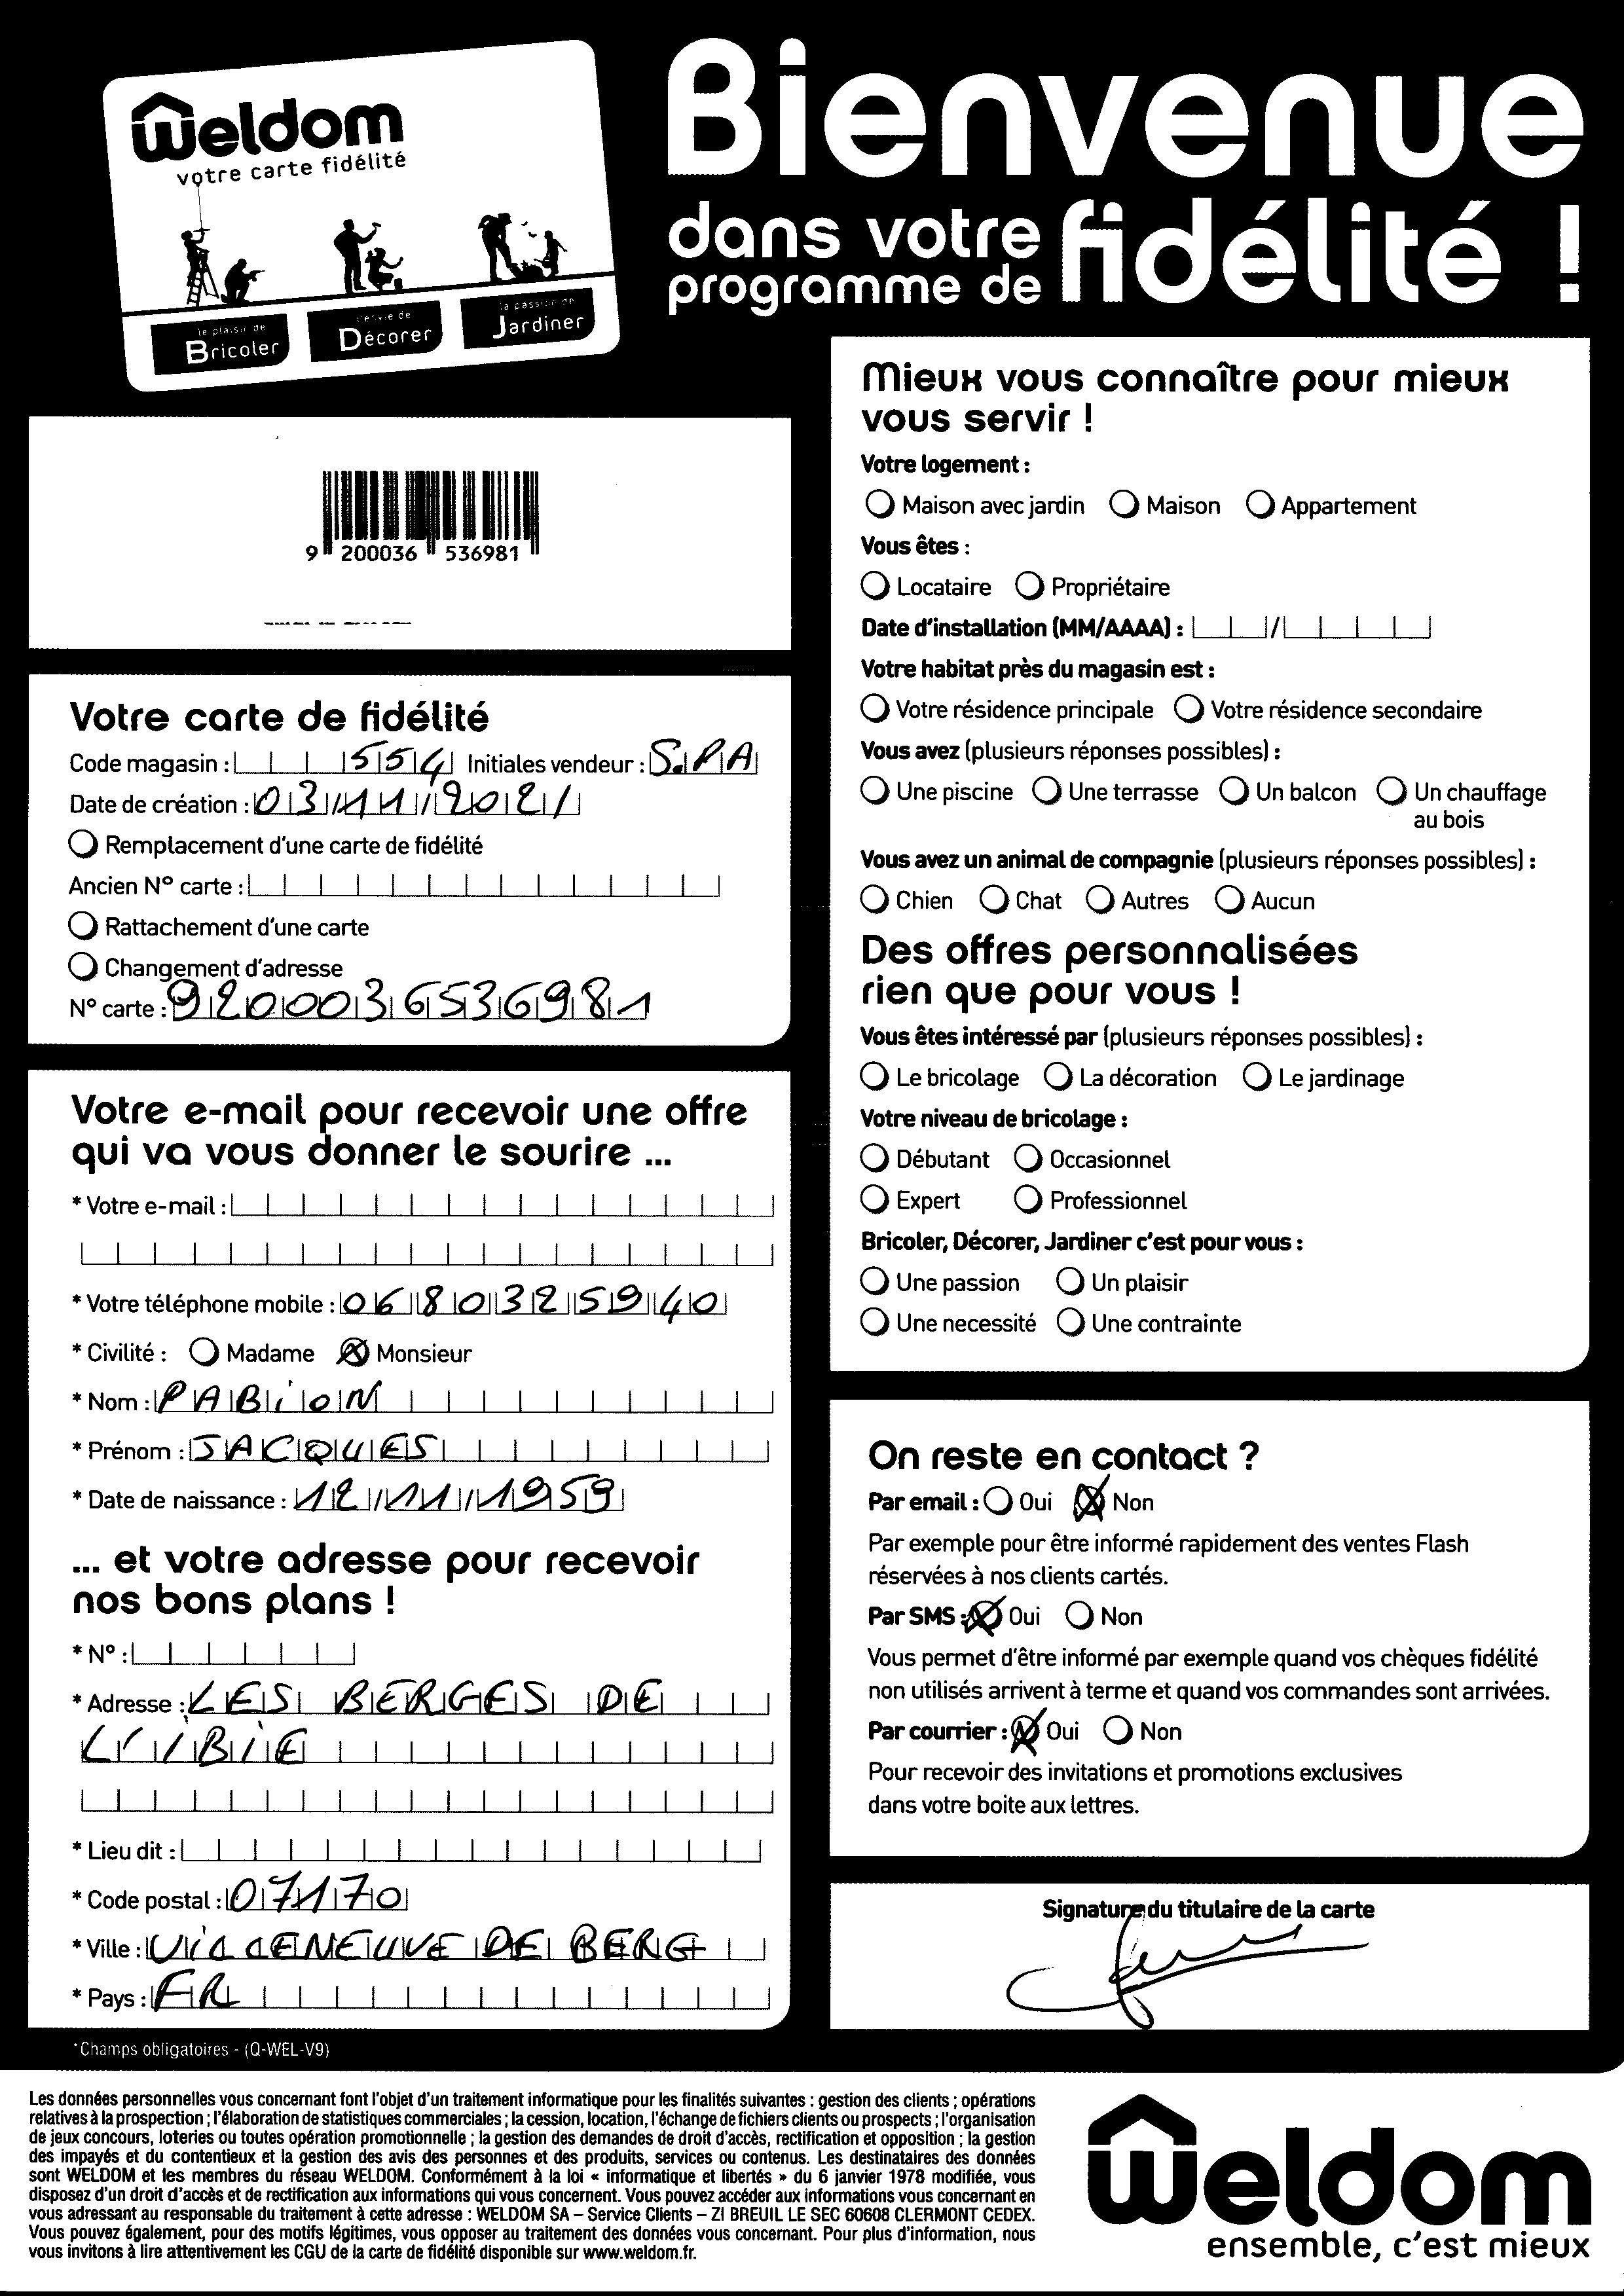 Weldom
votre carte fidélité
le plaisir de
Bricoler
l'envie de
Décorer
la passion de
Jardiner
Bienvenue
dans votre
programme de fidélité !
9 200036 536981
Votre carte de fidélité
Code magasin : 554 Initiales vendeur : S.PA
Date de création : 03/11/2021
Remplacement d'une carte de fidélité
Ancien N° carte :
Rattachement d'une carte
Changement d'adresse
N° carte : 9200036536981
Votre e-mail pour recevoir une offre
qui va vous donner le sourire ...
* Votre e-mail :
* Votre téléphone mobile : 0680325940
* Civilité : Madame Monsieur
* Nom : PABiON
* Prénom : JACQUES
* Date de naissance : 12/11/1959
... et votre adresse pour recevoir
nos bons plans !
* N° :
* Adresse : LES BERGES DE
L'iBiE
* Lieu dit :
* Code postal : 07170
* Ville : ViLLENEUVE DE BERG
* Pays : FR
*Champs obligatoires - (Q-WEL-V9)
Mieux vous connaître pour mieux
vous servir !
Votre logement :
Maison avec jardin Maison Appartement
Vous êtes :
Locataire Propriétaire
Date d'installation (MM/AAAA) : /
Votre habitat près du magasin est :
Votre résidence principale Votre résidence secondaire
Vous avez (plusieurs réponses possibles) :
Une piscine Une terrasse Un balcon Un chauffage
au bois
Vous avez un animal de compagnie (plusieurs réponses possibles) :
Chien Chat Autres Aucun
Des offres personnalisées
rien que pour vous !
Vous êtes intéressé par (plusieurs réponses possibles) :
Le bricolage La décoration Le jardinage
Votre niveau de bricolage :
Débutant Occasionnel
Expert Professionnel
Bricoler, Décorer, Jardiner c'est pour vous :
Une passion Un plaisir
Une necessité Une contrainte
On reste en contact ?
Par email : Oui Non
Par exemple pour être informé rapidement des ventes Flash
réservées à nos clients cartés.
Par SMS : Oui Non
Vous permet d'être informé par exemple quand vos chèques fidélité
non utilisés arrivent à terme et quand vos commandes sont arrivées.
Par courrier : Oui Non
Pour recevoir des invitations et promotions exclusives
dans votre boite aux lettres.
Signature du titulaire de la carte
Les données personnelles vous concernant font l'objet d'un traitement informatique pour les finalités suivantes : gestion des clients ; opérations
relatives à la prospection ; l'élaboration de statistiques commerciales ; la cession, location, l'échange de fichiers clients ou prospects ; l'organisation
de jeux concours, loteries ou toutes opération promotionnelle ; la gestion des demandes de droit d'accès, rectification et opposition ; la gestion
des impayés et du contentieux et la gestion des avis des personnes et des produits, services ou contenus. Les destinataires des données
sont WELDOM et les membres du réseau WELDOM. Conformément à la loi « informatique et libertés » du 6 janvier 1978 modifiée, vous
disposez d'un droit d'accès et de rectification aux informations qui vous concernent. Vous pouvez accéder aux informations vous concernant en
vous adressant au responsable du traitement à cette adresse : WELDOM SA – Service Clients – ZI BREUIL LE SEC 60608 CLERMONT CEDEX.
Vous pouvez également, pour des motifs légitimes, vous opposer au traitement des données vous concernant. Pour plus d'information, nous
vous invitons à lire attentivement les CGU de la carte de fidélité disponible sur www.weldom.fr.
Weldom
ensemble, c'est mieux